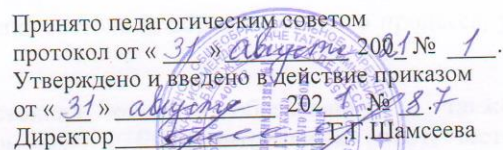 Принято педагогическим советом
протокол от « 31 » августа 2021 № 1.
Утверждено и введено в действие приказом
от « 31 » августа 202 1 № 87.
Директор Г.Г.Шамсеева